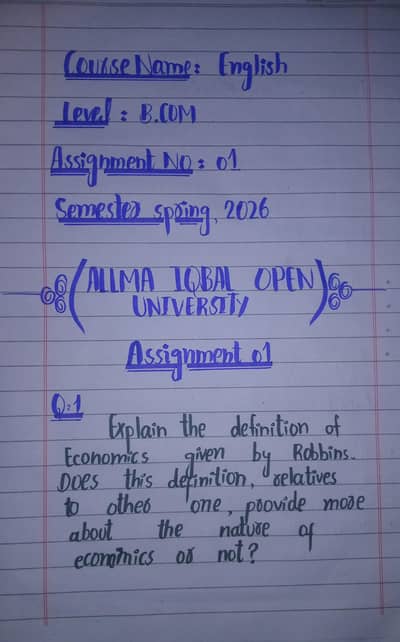 Course Name: English
Level: B.COM
Assignment NO: 01
Semester spring, 2026
(ALLMA IQBAL OPEN
UNIVERSITY)
Assignment 01
Q:1
Explain the definition of
Economics given by Robbins.
DOES this definition, relatives
to other one, provide more
about the nature of
economics or not?